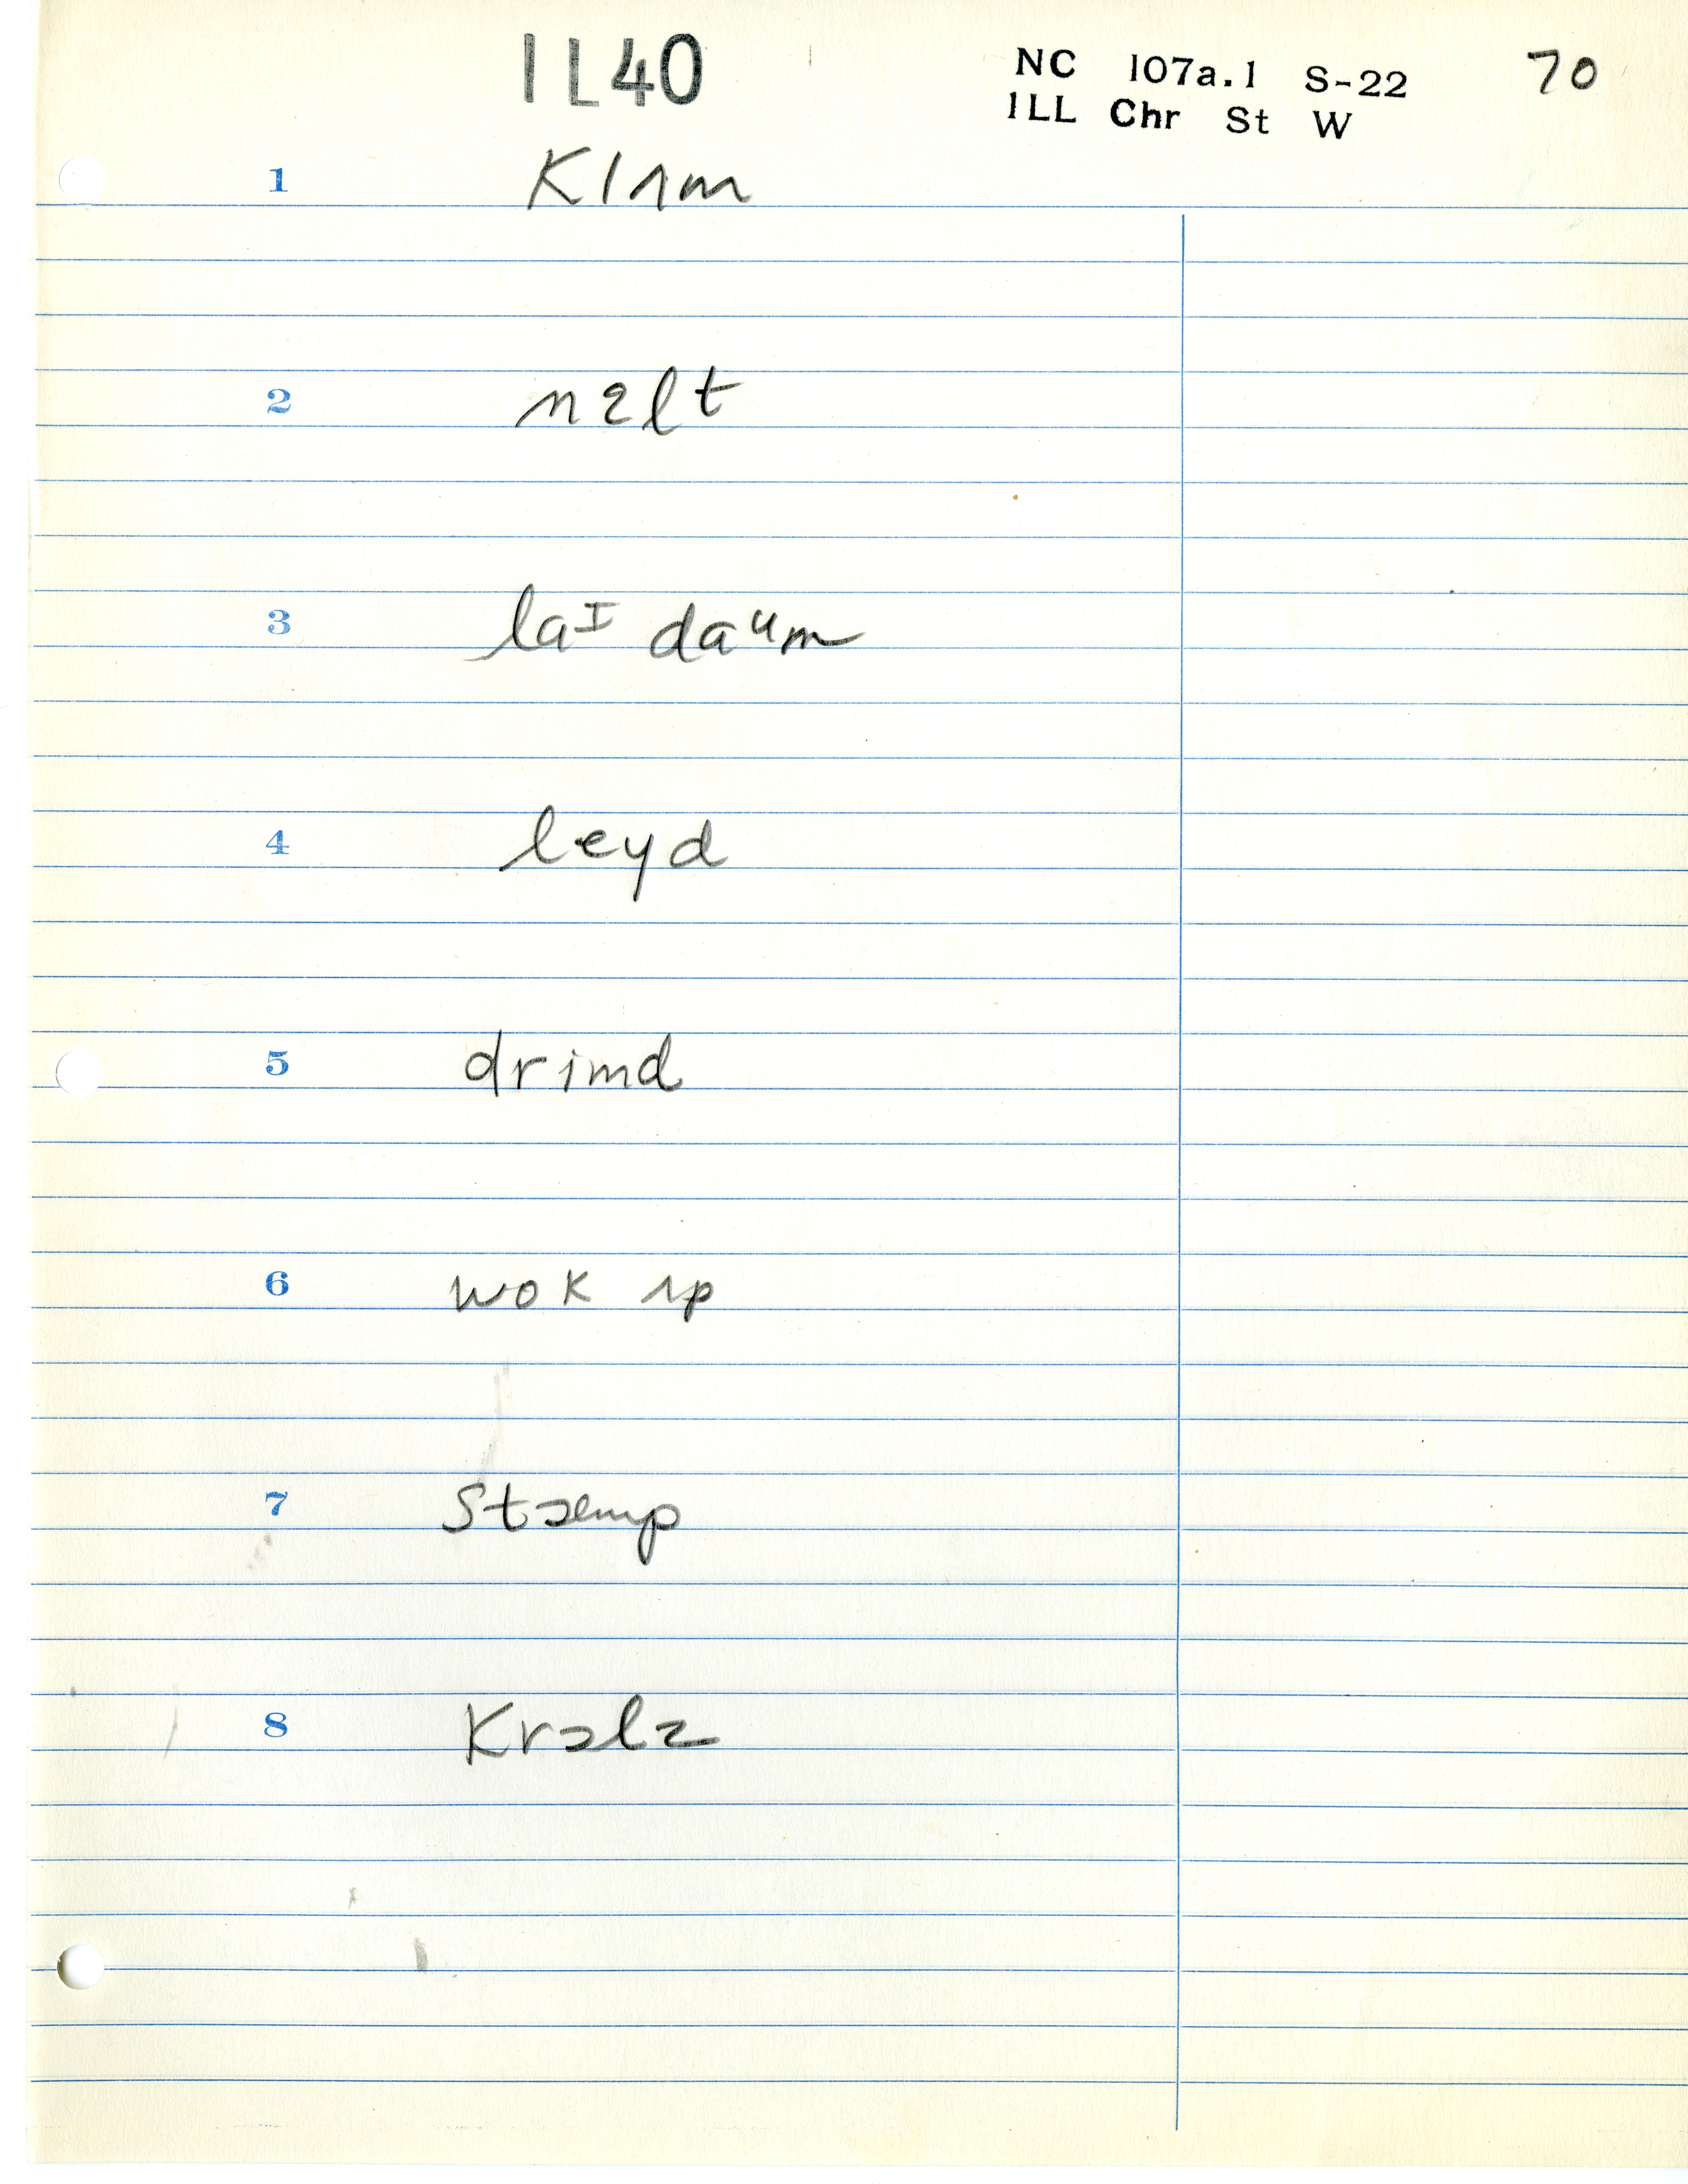 IL40
NC 107a.1 S-22 70
ILL Chr St W
1 Klʌm
2 nɛlt
3 laᴵ daᵘm
4 leyd
5 drimd
6 wok ʌp
7 stæmp
8 krɔlz